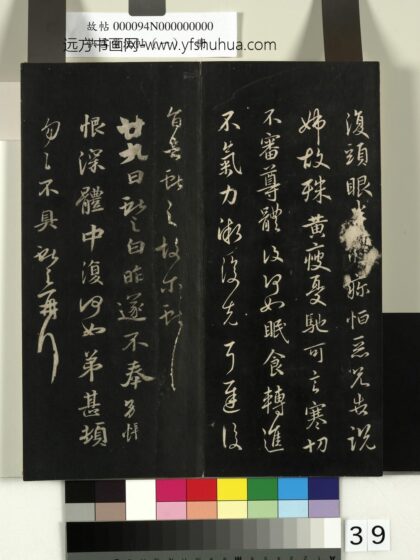 故帖 000094N000000000
远方书画网
www.yfshuhua.com
復頭眼
惡兄告說
姊故殊黃瘦憂馳可言寒切
不審尊體復何如眠食轉進
不氣力漸復充耳遲復
廿九日獻之白昨遂不奉別悵
恨深體中復何如弟甚頓
勿勿不具獻之再拜
39